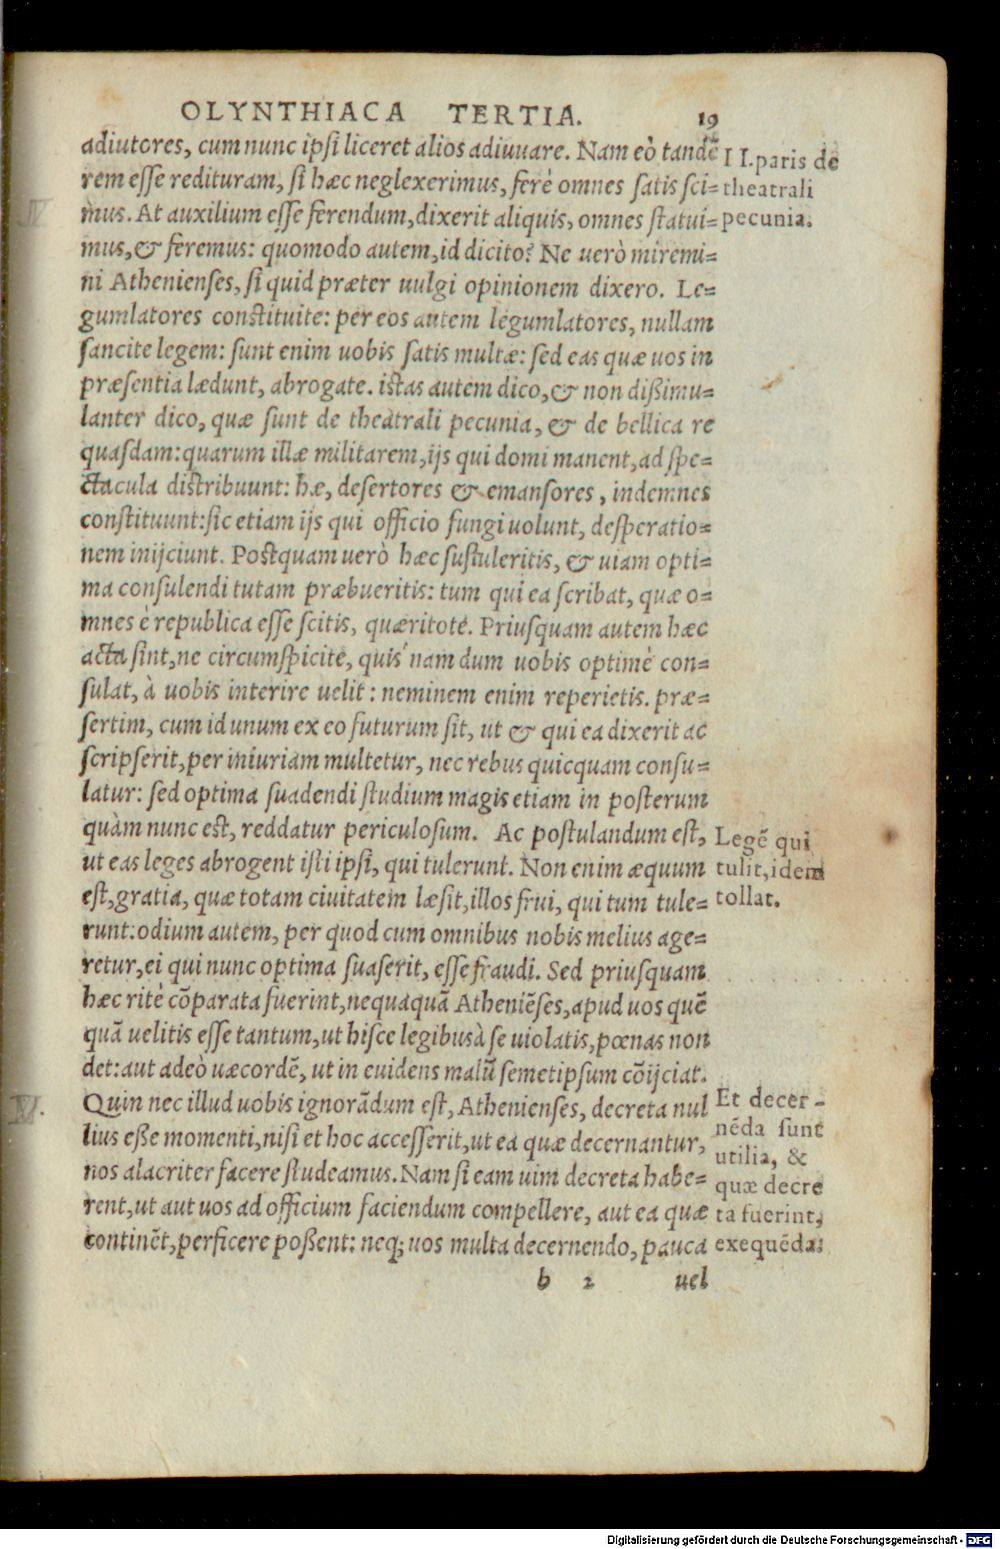 OLYNTHIACA TERTIA. 19
adiutores, cum nunc ipsi liceret alios adiuuare. Nam eò tandẽ
rem esse redituram, si hæc neglexerimus, ferè omnes satis sci=
mus. At auxilium esse ferendum, dixerit aliquis, omnes statui=
mus, & feremus: quomodo autem, id dicito? Ne uerò miremi=
ni Athenienses, si quid præter uulgi opinionem dixero. Le=
gumlatores constituite: per eos autem legumlatores, nullam
sancite legem: sunt enim uobis satis multæ: sed eas quæ uos in
præsentia lædunt, abrogate. istas autem dico, & non dißimu=
lanter dico, quæ sunt de theatrali pecunia, & de bellica re
quasdam: quarum illæ militarem, ijs qui domi manent, ad spe=
ctacula distribuunt: hæ, desertores & emansores, indemnes
constituunt: sic etiam ijs qui officio fungi uolunt, desperatio=
nem inijciunt. Postquam uerò hæc sustuleritis, & uiam opti=
ma consulendi tutam præbueritis: tum qui ea scribat, quæ o=
mnes è republica esse scitis, quæritote. Priusquam autem hæc
acta sint, ne circumspicite, quis nam dum uobis optimè con=
sulat, à uobis interire uelit: neminem enim reperietis. præ=
sertim, cum id unum ex eo futurum sit, ut & qui ea dixerit ac
scripserit, per iniuriam multetur, nec rebus quicquam consu=
latur: sed optima suadendi studium magis etiam in posterum
quàm nunc est, reddatur periculosum. Ac postulandum est,
ut eas leges abrogent isti ipsi, qui tulerunt. Non enim æquum
est, gratia, quæ totam ciuitatem læsit, illos frui, qui tum tule=
runt: odium autem, per quod cum omnibus nobis melius age=
retur, ei qui nunc optima suaserit, esse fraudi. Sed priusquam
hæc ritè cõparata fuerint, nequaquã Atheniẽses, apud uos quẽ
quã uelitis esse tantum, ut hisce legibus à se uiolatis, pœnas non
det: aut adeò uæcordẽ, ut in euidens malũ semetipsum cõijciat.
Quin nec illud uobis ignorãdum est, Athenienses, decreta nul
lius eße momenti, nisi et hoc accesserit, ut ea quæ decernantur,
nos alacriter facere studeamus. Nam si eam uim decreta habe=
rent, ut aut uos ad officium faciendum compellere, aut ea quæ
continẽt, perficere poßent: neq; uos multa decernendo, pauca
b 2 uel
II. paris de
theatrali
pecunia.
Legẽ qui
tulit, idem
tollat.
Et decer-
nẽda sunt
utilia, &
quæ decre
ta fuerint,
exequẽda:
IV
VI.
Digitalisierung gefördert durch die Deutsche Forschungsgemeinschaft - DFG